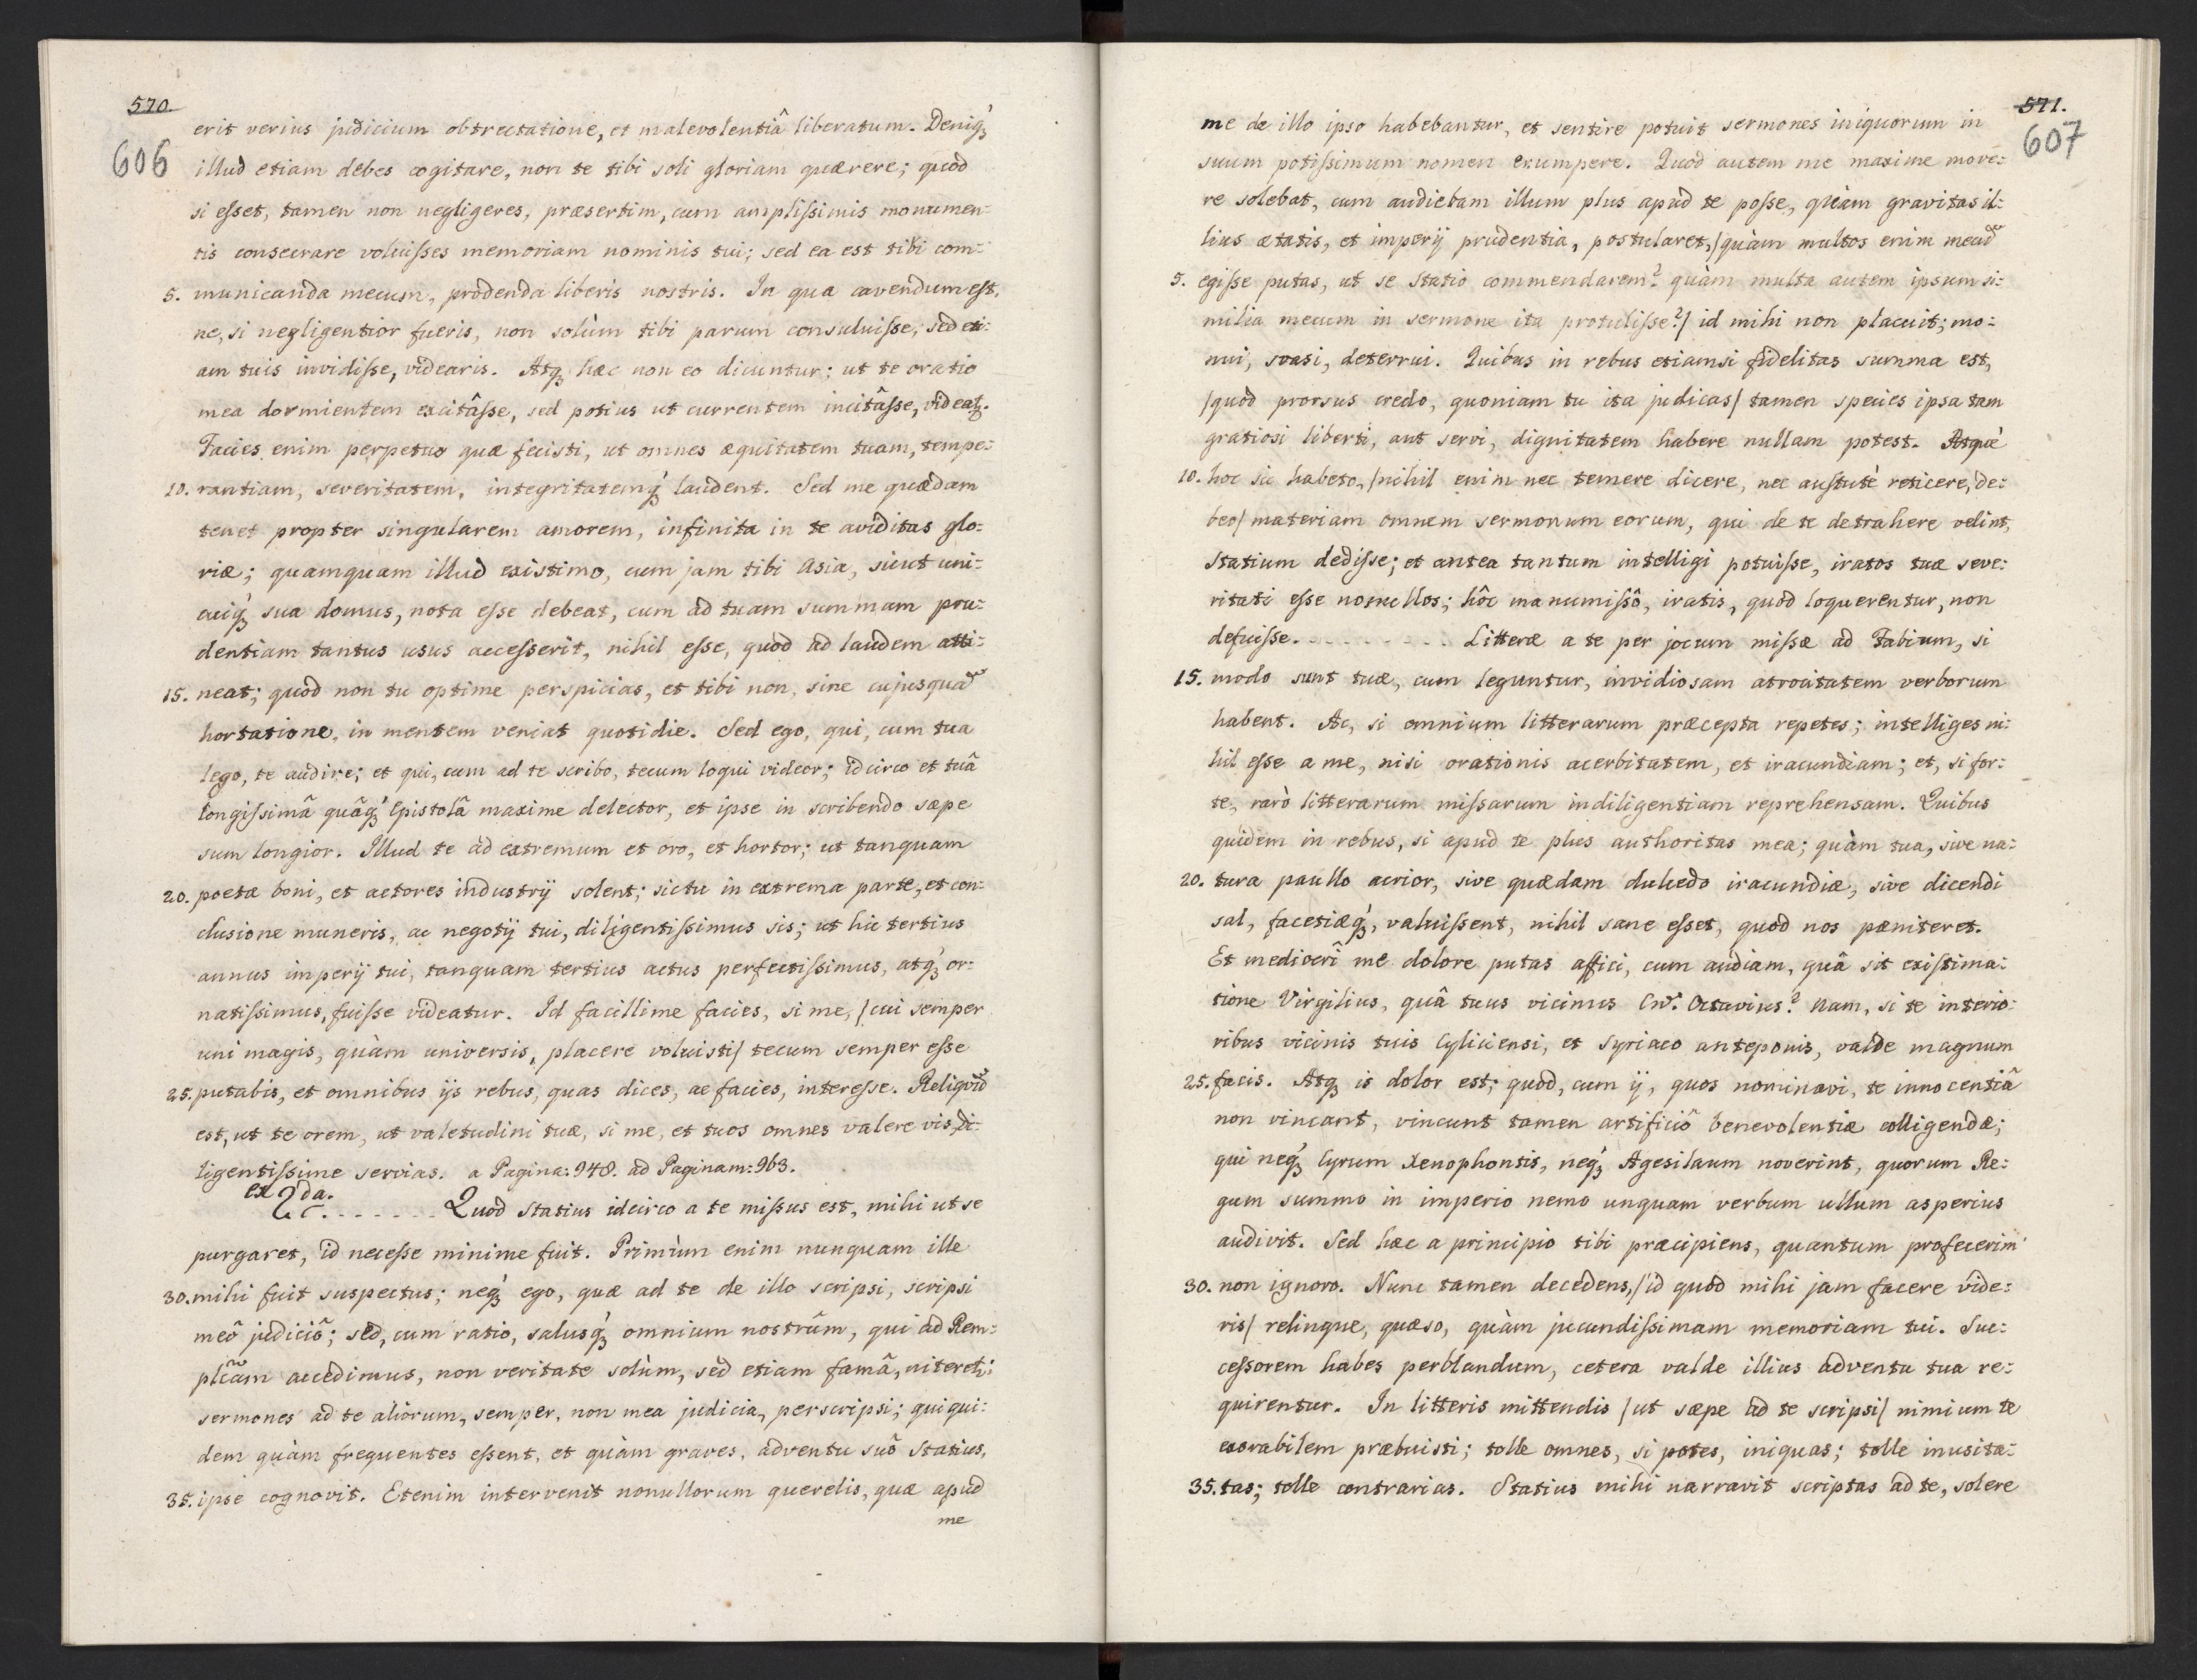 570.
606
erit verius judicium obtrectatione, et malevolentiâ liberatum. Deniq́ꝫ
illud etiam debes cogitare, non te tibi soli gloriam quærere; quod
si eſset, tamen non negligeres, præsertim, cum ampliſsimis monumen:
tis consecrare voluiſses memoriam nominis tui; sed ea est tibi com:
5. municanda mecum, prodenda liberis nostris. In qua cavendum eſt,
ne, si negligentior fueris, non solùm tibi parum consuluiſse, sed eti:
am tuis invidiſse, videaris. Atqꝫ hæc non eo dicuntur; ut te oratio
mea dormientem excitâſse, sed potius ut currentem incitâſse, videatꝫ.
Facies enim perpetuo quæ fecisti, ut omnes æquitatem tuam, tempe:
10. rantiam, severitatem, integritatemq́ꝫ laudent. Sed me quædam
tenet propter singularem amorem, infinita in te aviditas glo:
riæ; quamquam illud existimo, cum jam tibi Asia, sicut uni:
cuiq́ꝫ sua domus, nota eſse debeat, cum ad tuam summam pru:
dentiam tantus usus acceſserit, nihil eſse, quod ad laudem atti:
15. neat; quod non tu optime perspicias, et tibi non, sine cujusquã
hortatione, in mentem veniat quotidie. Sed ego, qui, cum tua
lego, te audire; et qui, cum ad te scribo, tecum loqui videor; idcirco et tuâ
longiſsimâ quâq́ꝫ Epistolâ maxime delector, et ipse in scribendo sæpe
sum longior. Illud te ad extremum et oro, et hortor; ut tanquam
20. poetæ boni, et actores industrÿ solent; sic tu in extrema parte, et con:
clusione muneris, ac negotÿ tui, diligentiſsimus sis; ut hic tertius
annus imperÿ tui, tanquam tertius actus perfectiſsimus, atq́ꝫ or:
natiſsimus, fuiſse videatur. Id facillime facies, si me, /cui semper
uni magis, quàm universis, placere voluisti/ tecum semper eſse
25. putabis, et omnibus ÿs rebus, quas dices, ac facies, intereſse. Reliquũ
est, ut te orem, ut valetudini tuæ, si me, et tuos omnes valere vis, di:
ligentiſsime servias. a Pagina: 948. ad Paginam: 963.
ex 2da.
&c. . . . . . . . Quod Statius idcirco a te miſsus est, mihi ut se
purgaret, id neceſse minime fuit. Primùm enim nunquam ille
30. mihi fuit suspectus; neq́ꝫ ego, quæ ad te de illo scripsi, scripsi
meô judiciô; sed, cum ratio, salusq́ꝫ omnium nostrûm, qui ad Rem:
plcãm accedimus, non veritate solùm, sed etiam famâ, niteretꝫ:
sermones ad te aliorum, semper, non mea judicia, perscripsi; qui qui:
dem quàm frequentes eſsent, et quàm graves, adventu suô Statius,
35. ipse cognovit. Etenim intervenit nonullorum querelis, quæ apud
me
571.
607
me de illo ipso habebantur, et sentire potuit sermones iniquorum in
suum potiſsimum nomen erumpere. Quod autem me maxime move:
re solebat, cum audiebam illum plus apud te poſse, quàm gravitas il:
lius ætatis, et imperÿ prudentia, postularet, /quàm multos enim mecũ
5. egiſse putas, ut se Statio commendarem? quàm multa autem ipsum si:
milia mecum in sermone ita protuliſse?/ id mihi non placuit; mo:
nui, svasi, deterrui. Quibus in rebus etiamsi fidelitas summa est,
/quod prorsus credo, quoniam tu ita judicas/ tamen species ipsa tam
gratiosi liberti, aut servi, dignitatem habere nullam potest. Atquè
10. hoc sic habeto, /nihil enim nec temere dicere, nec austutè reticere, de:
beo/ materiam omnem sermonum eorum, qui de te detrahere velint,
Statium dediſse; et antea tantum intelligi potuiſse, iratos tuæ seve:
ritati eſse nonnullos; hôc manumiſsô, iratis, quod loquerentur, non
defuiſse. . . . . . . . . . . Litteræ a te per jocum miſsæ ad Fabium, si
15. modo sunt tuæ, cum leguntur, invidiosam atrocitatem verborum
habent. Ac, si omnium litterarum præcepta repetes; intelliges ni:
hil eſse a me, nisi orationis acerbitatem, et iracundiam; et, si for:
te, rarò litterarum miſsarum indiligentiam reprehensam. Quibus
quidem in rebus, si apud te plus authoritas mea; quàm tua, sive na:
20. tura paullo acrior, sive quædam dulcedo iracundiæ, sive dicendi
sal, facetiæq́ꝫ, valuiſsent, nihil sane eſset, quod nos pæniteret.
Et mediocrî me dolore putas affici, cum audiam, quâ sit exiſtima:
tione Virgilius, quâ tuus vicinus Cn: Octavius? Nam, si te interio:
ribus vicinis tuis Cyliciensi, et Syriaco anteponis, valde magnum
25. facis. Atqꝫ is dolor est; quod, cum ÿ, quos nominavi, te innocentiâ
non vincant, vincunt tamen artificiô benevolentiæ colligendæ;
qui neq́ꝫ Cyrum Xenophontis, neq́ꝫ Agesilaum noverint, quorum Re:
gum summo in imperio nemo unquam verbum ullum asperius
audivit. Sed hæc a principio tibi præcipiens, quantum profecerim
30. non ignoro. Nunc tamen decedens, /id quod mihi jam facere vide:
ris/ relinque, quæso, quàm jucundiſsimam memoriam tui. Suc:
ceſsorem habes perblandum, cetera valde illius adventu tua re:
quirentur. In litteris mittendis /ut sæpe ad te scripsi/ nimium te
exorabilem præbuisti; tolle omnes, si potes, iniquas; tolle inusita:
35. tas; tolle contrarias. Statius mihi narravit scriptas ad te, solere